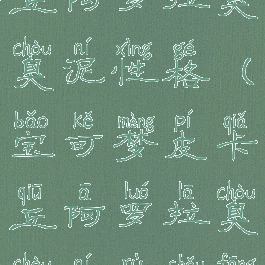 chòu ní xìng gé
臭 泥 性 格 （
bǎo kě mèng pí qiǎ
宝 可 梦 皮 卡
qiū ā luó lā chòu
丘 阿 罗 拉 臭